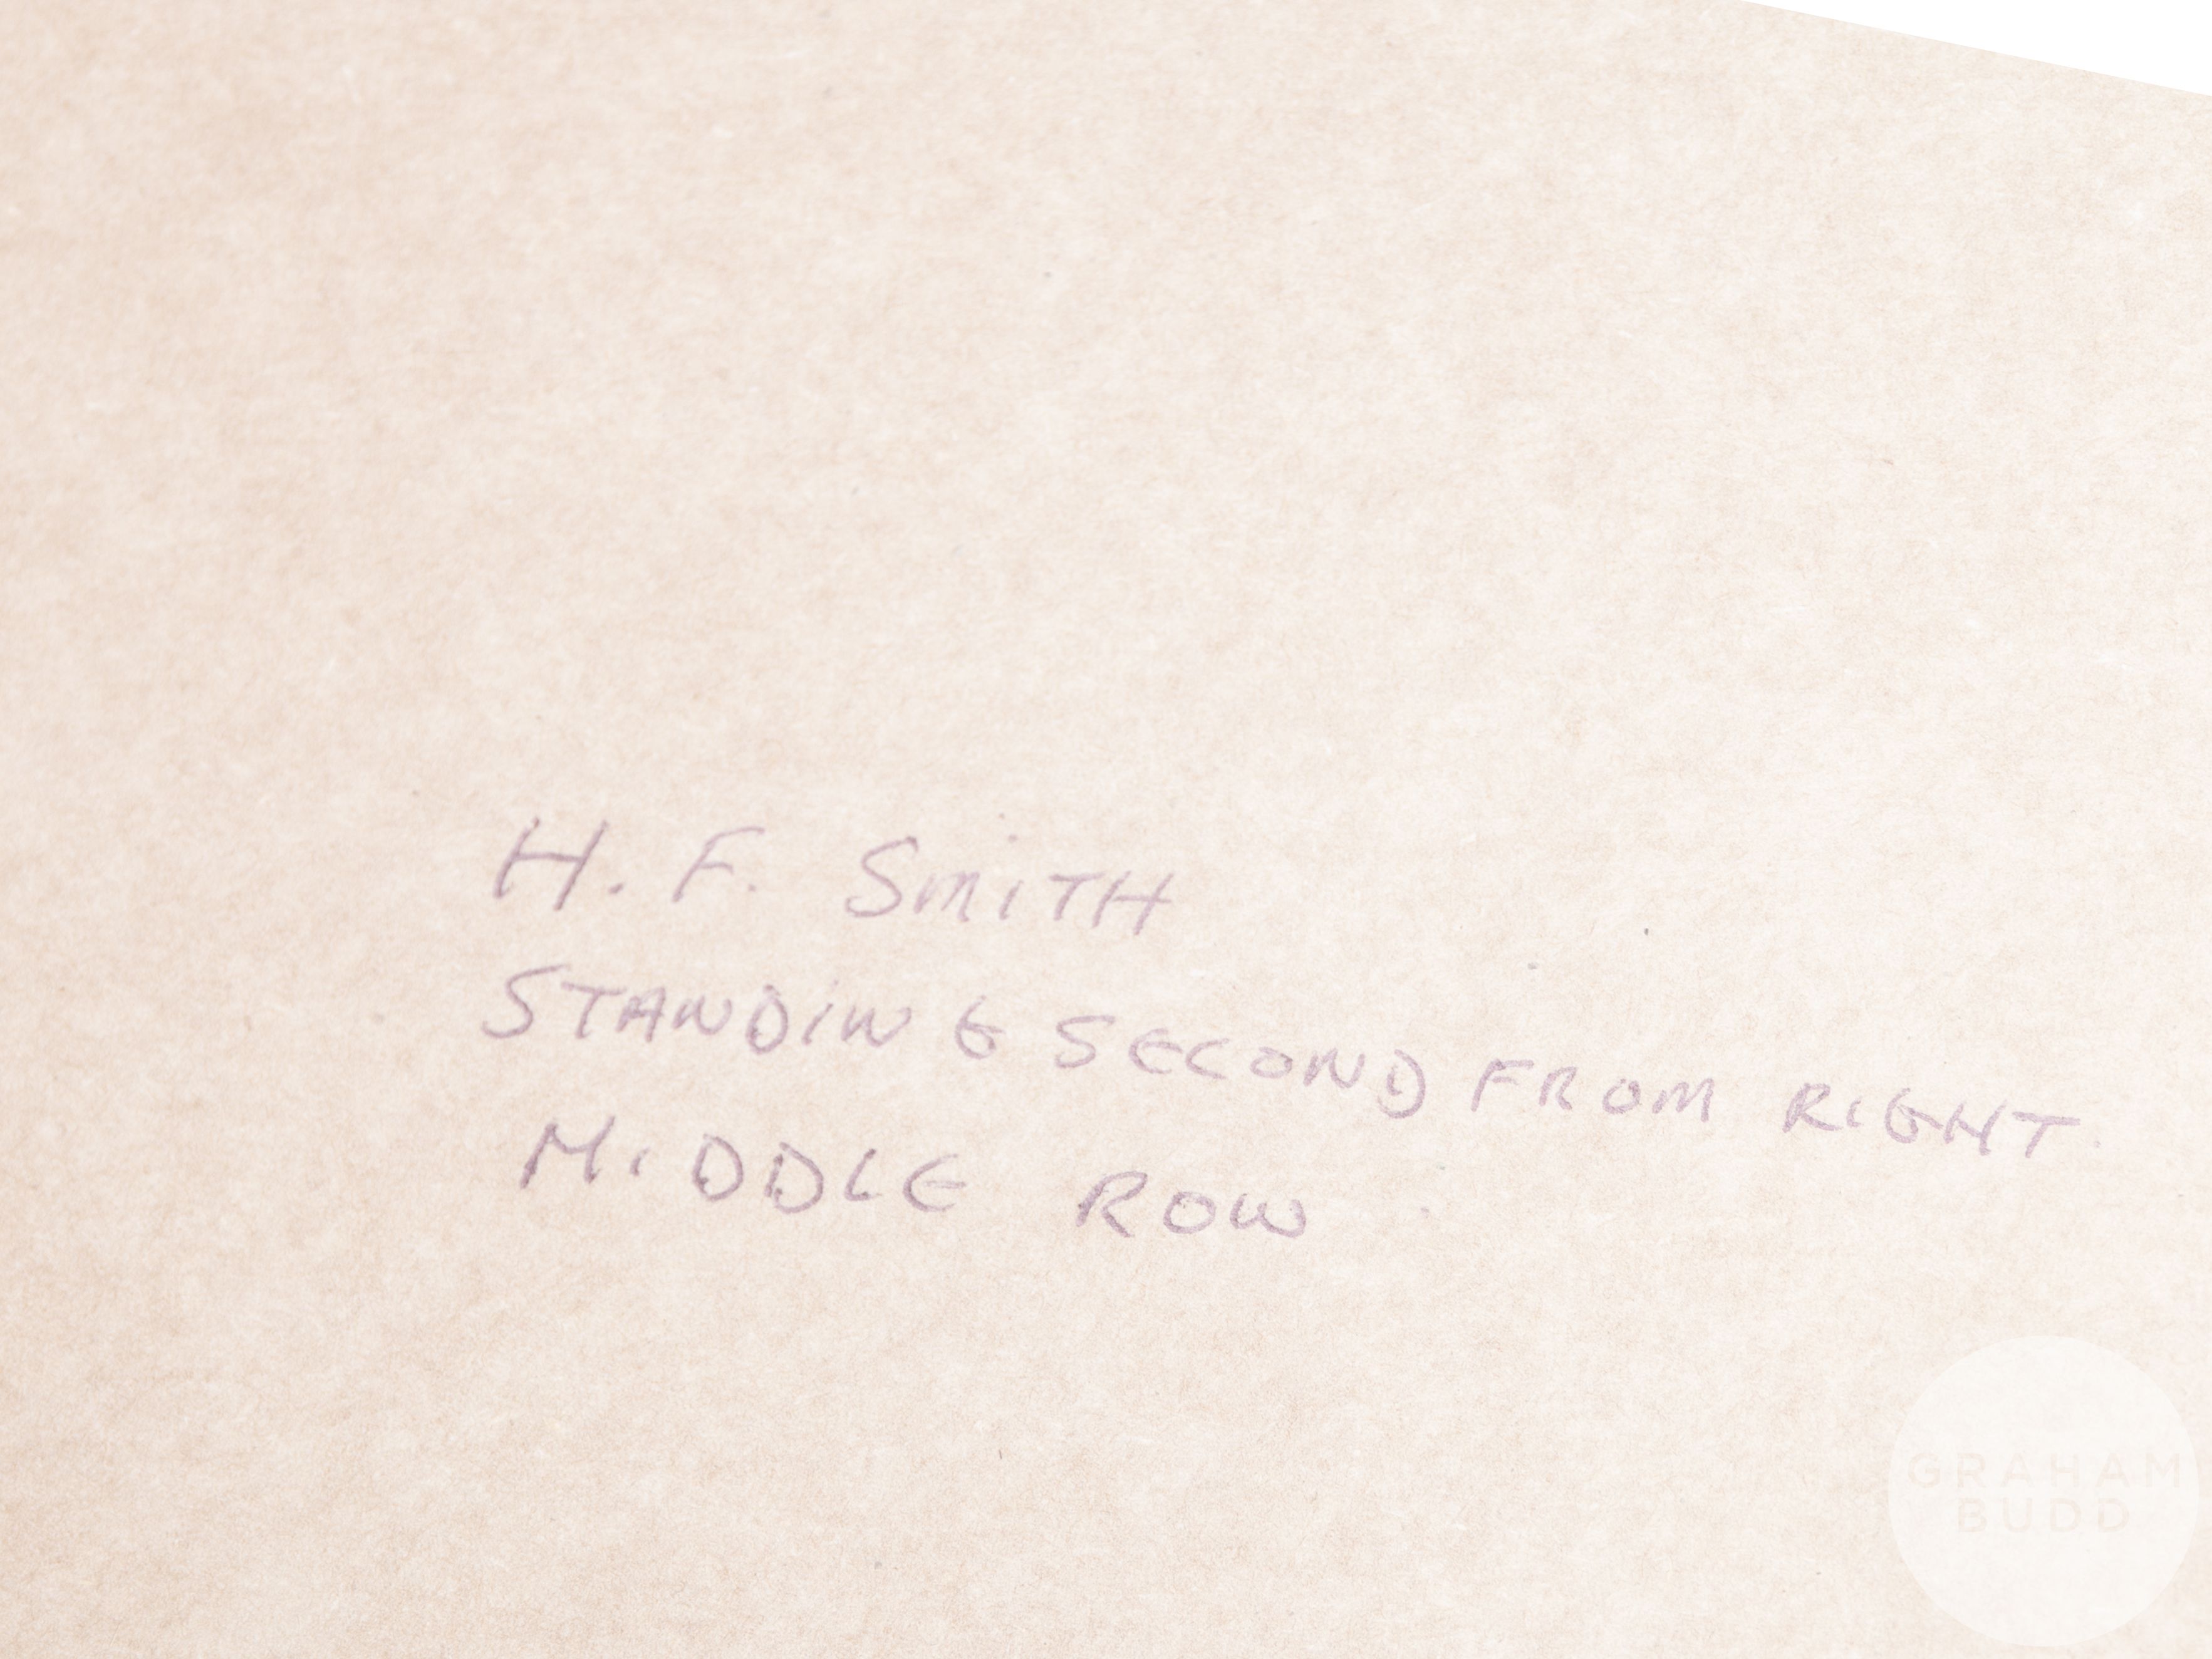 H. F. SMITH
STANDING SECOND FROM RIGHT.
MIDDLE ROW
GRAHAM
BUDD